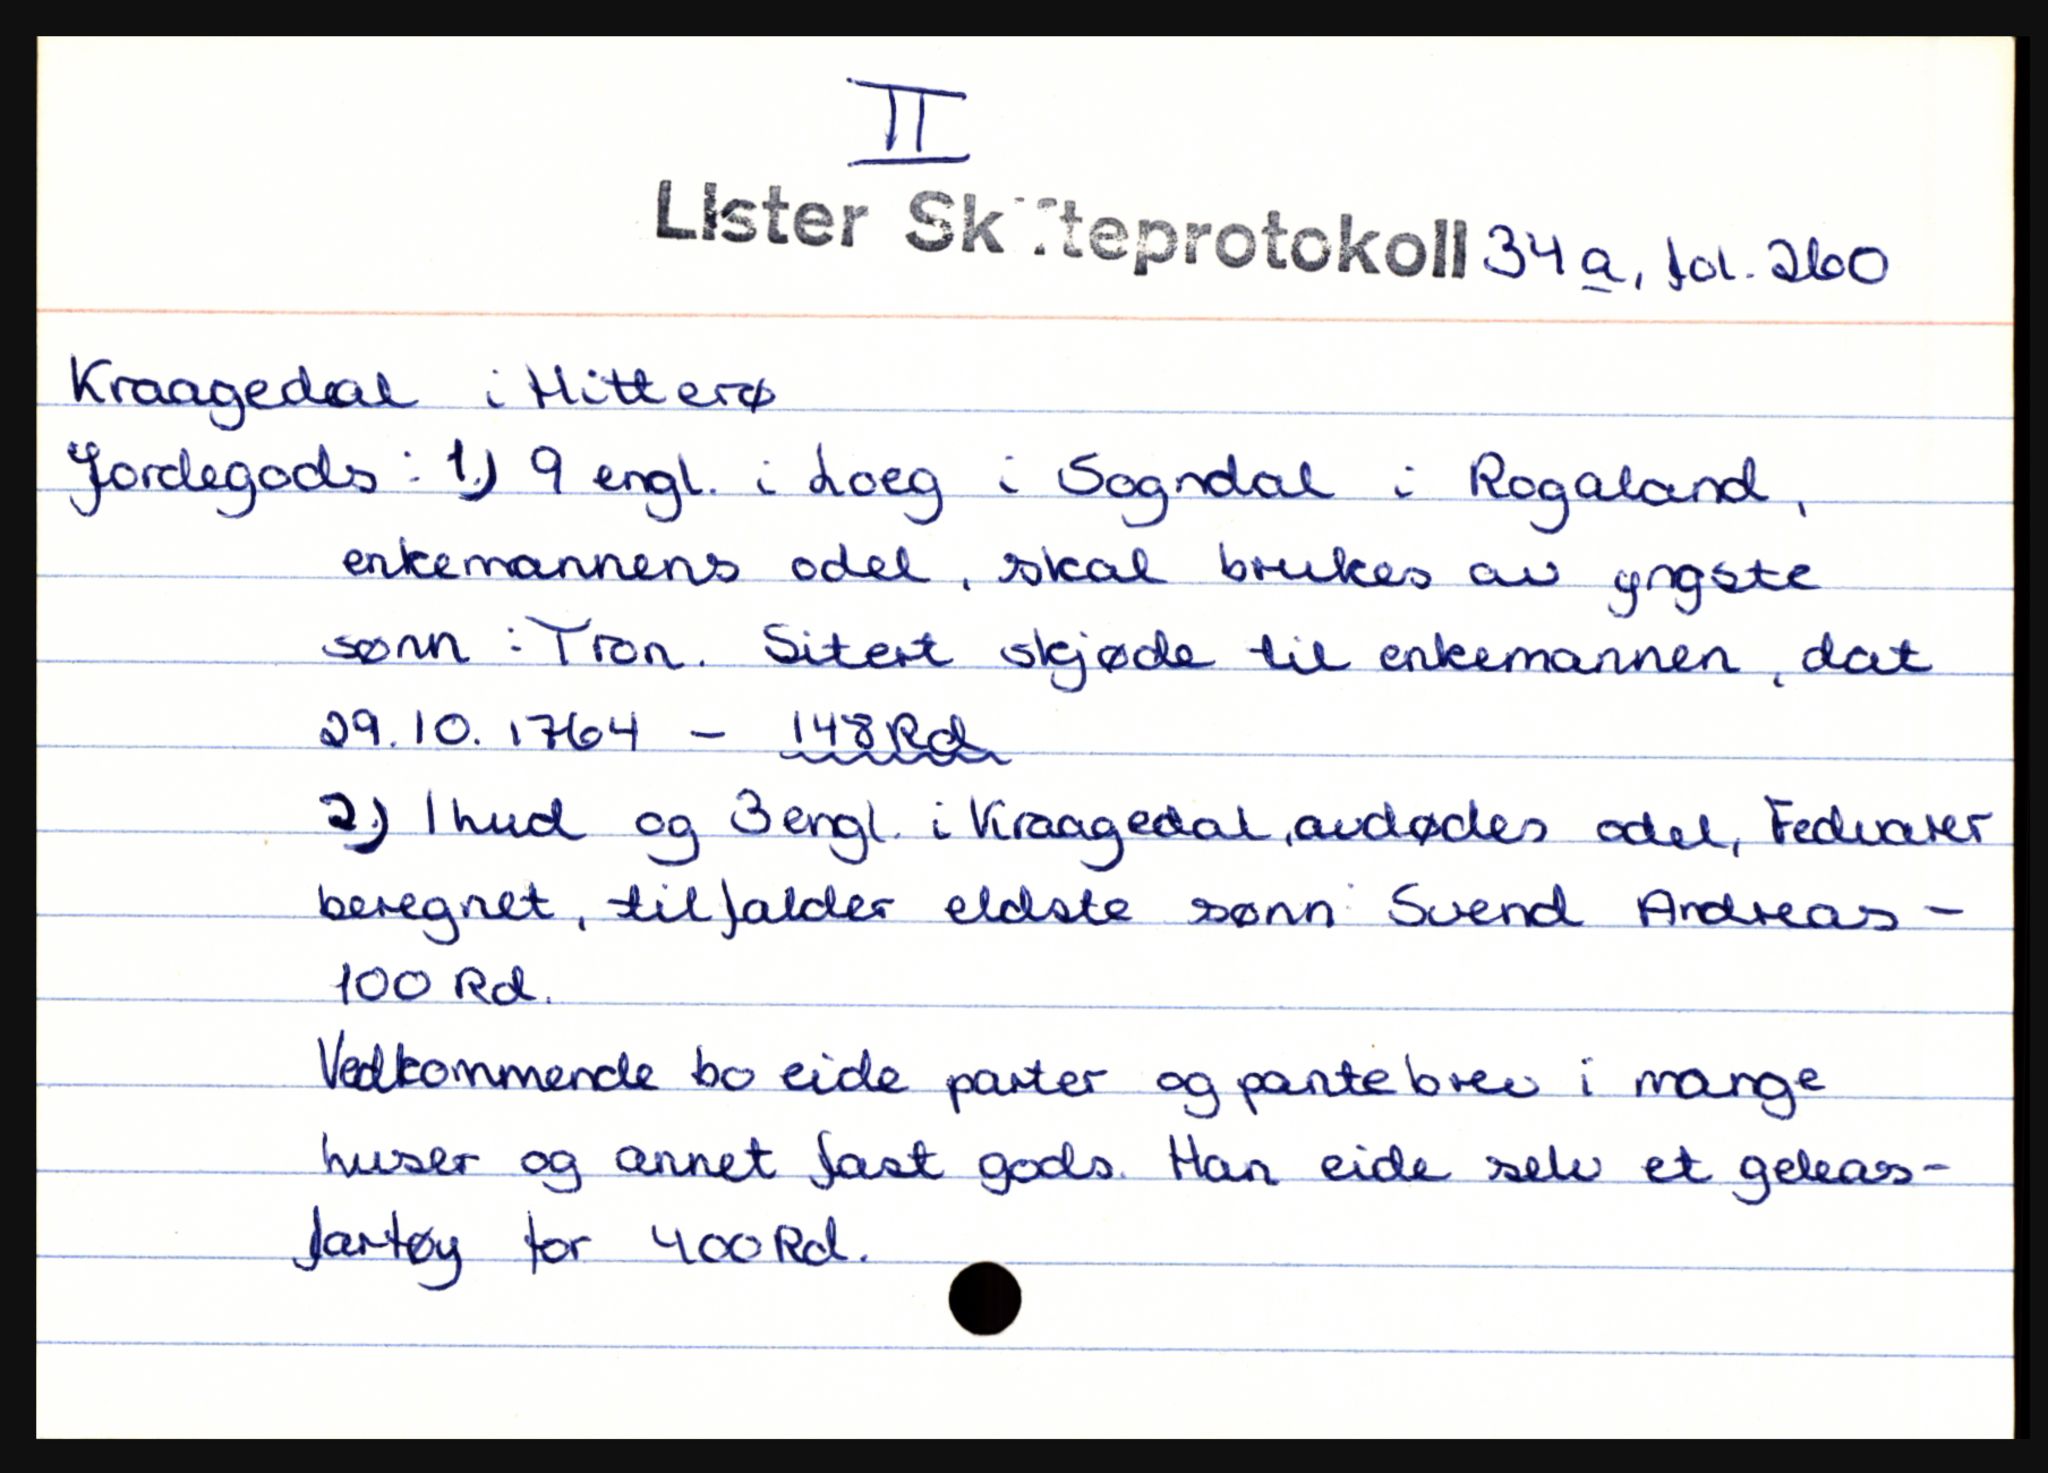 II
Lister Skifteprotokoll 34a, fol. 260
Kraagedal i Hitterø
Jordegods : 1.) 9 engl. i Loeg i Sogndal i Rogaland,
enkemannens odel, skal brukes av yngste
sønn : Tron. Sitert skjøde til enkemannen, dat
29.10.1764 - 148 Rd
2.) 1 hud og 3 engl. i Kraagedal, avdødes odel, Fedvarer
beregnet, tilfalder eldste sønn Svend Andreas -
100 Rd.
Vedkommende bo eide parter og pantebrev i mange
huser og annet fast gods. Han eide selv et geleas-
fartøy for 400 Rd.